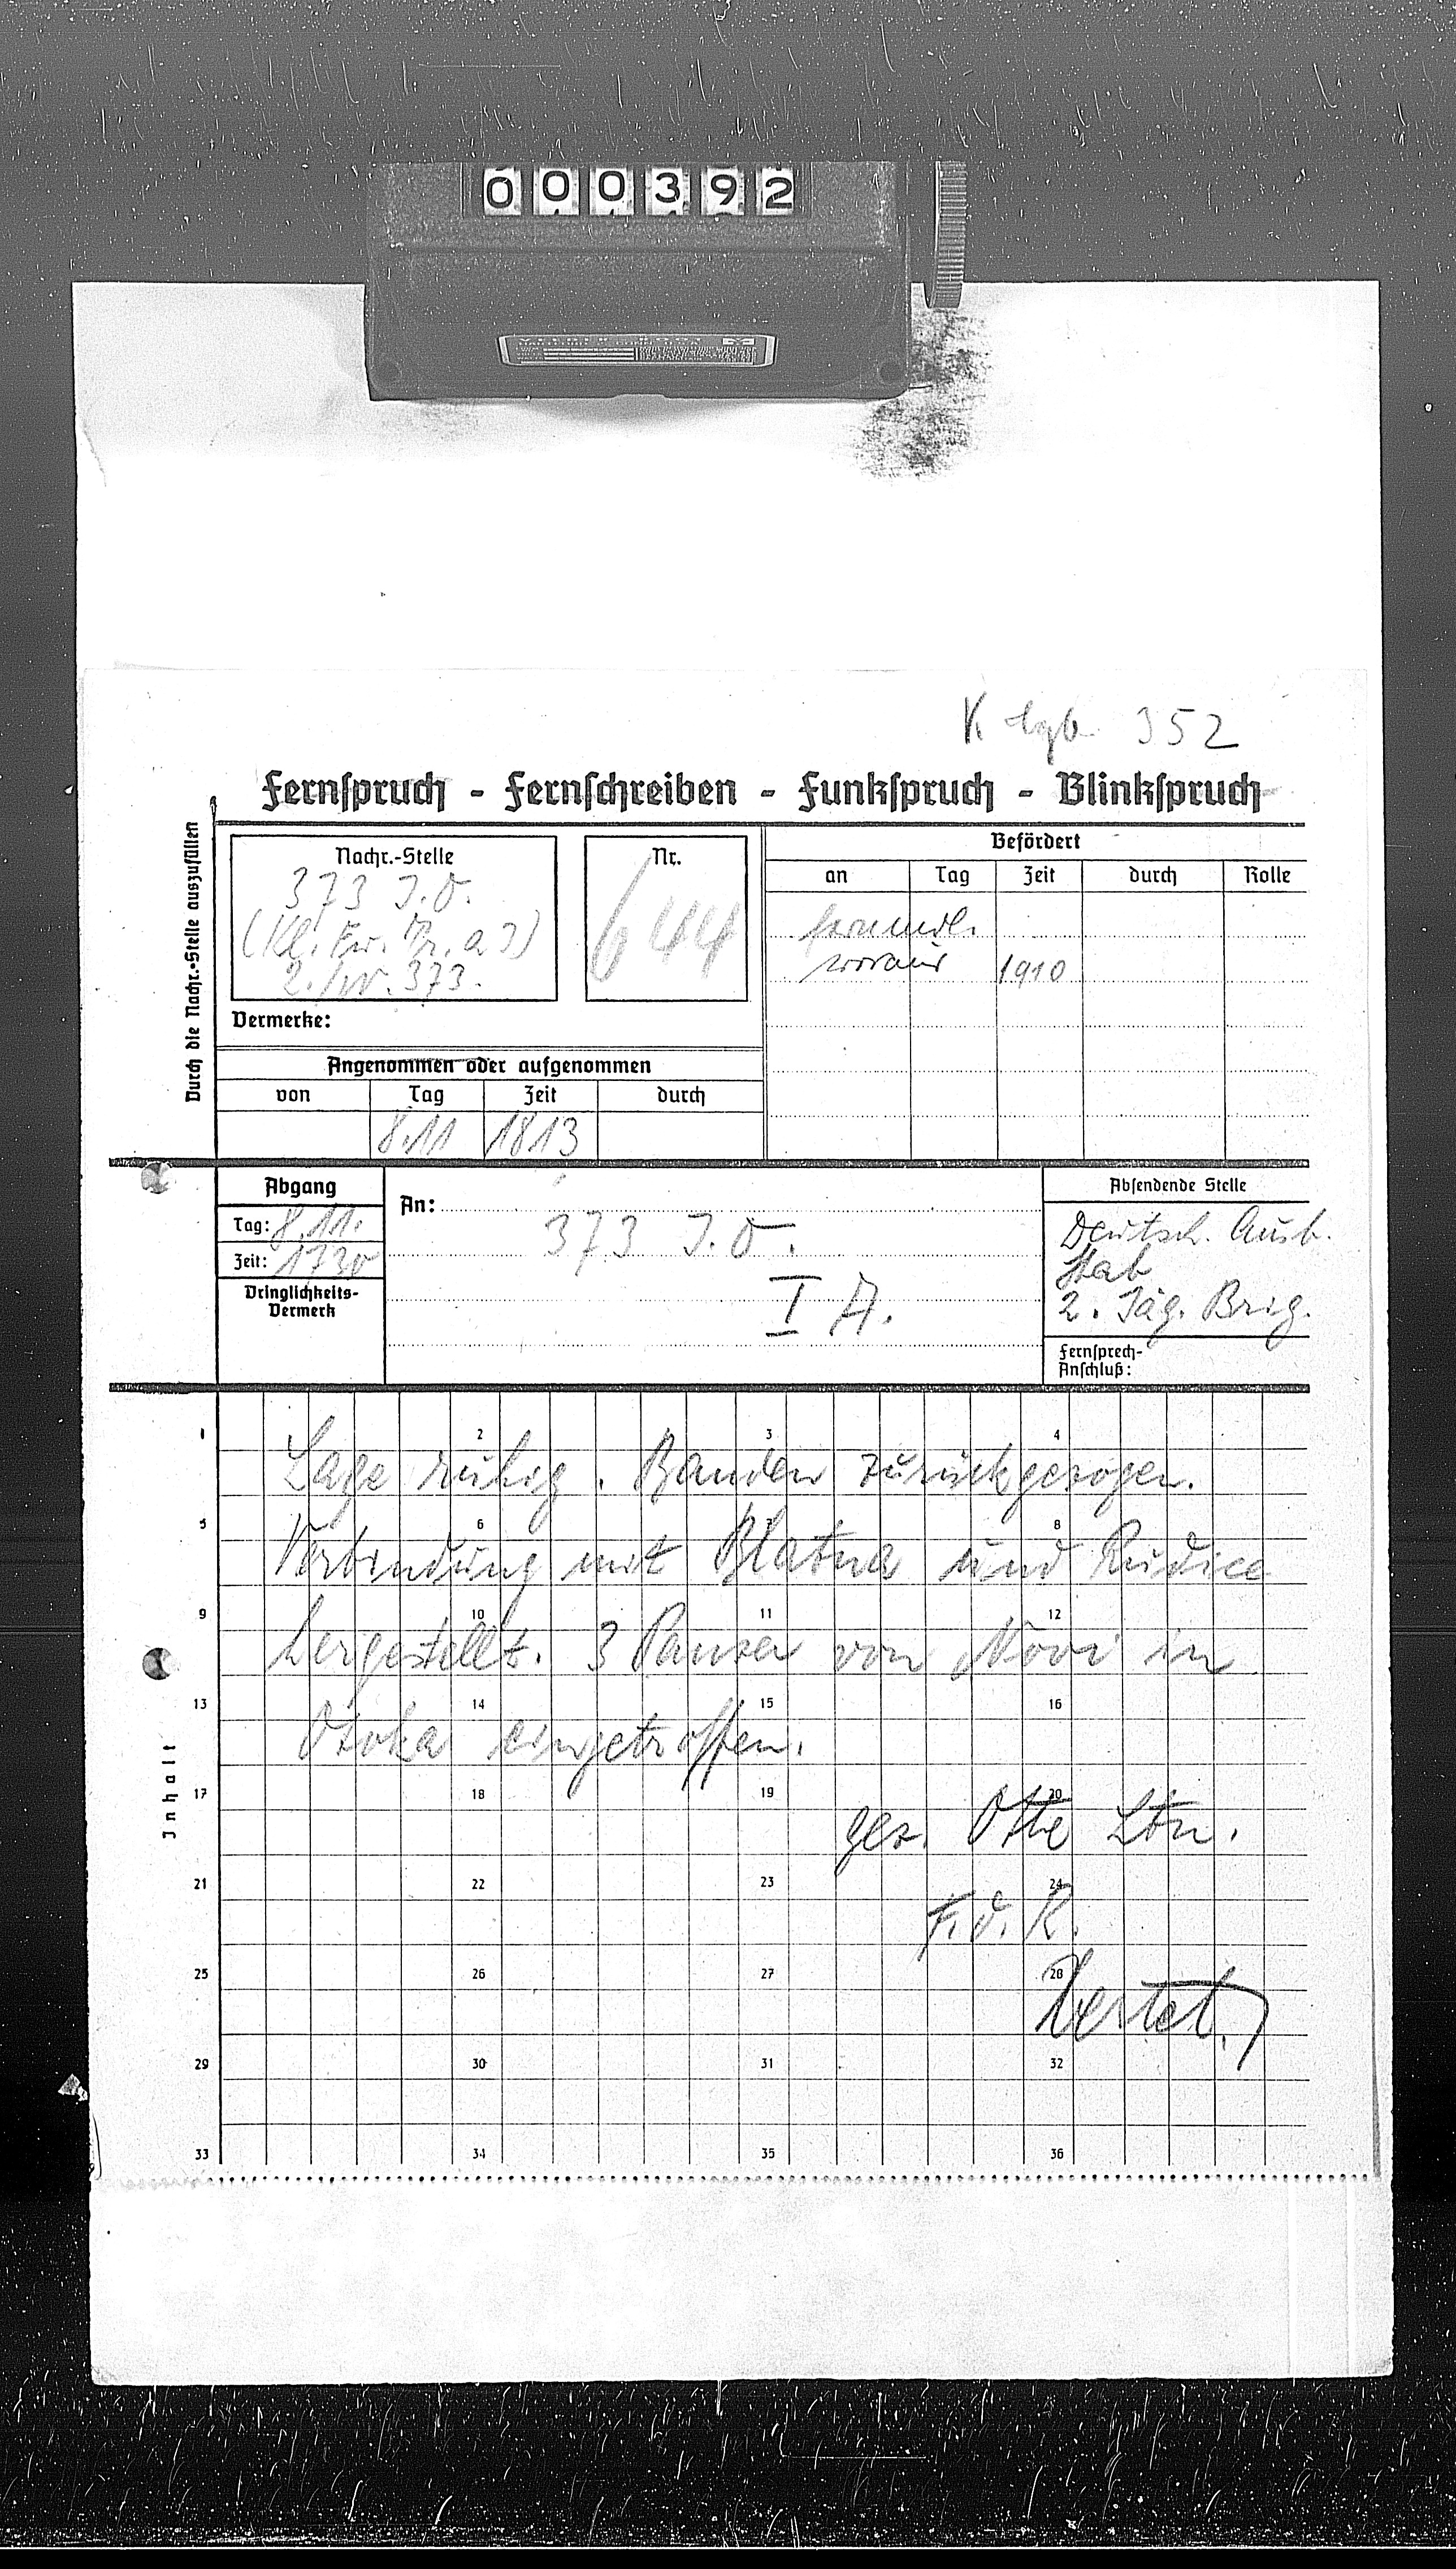 000392
K 352
Fernspruch - Fernschreiben - Funkspruch - Blinkspruch
Durch die Nachr.-Stelle auszufüllen
Nachr.-Stelle
373 J.D.
2./N. 373.
Nr.
644
Vermerke:
Angenommen oder aufgenommen
von Tag Zeit durch
8.11 1813
Befördert
an Tag Zeit durch Rolle
fernmdl.
voraus 1910
Abgang
Tag: 8.11.
Zeit: 1730
Dringlichkeits-
Vermerk
An:
373 J.D.
I A.
Absendende Stelle
Deutsch. Ausb.
Stab
2. Jäg. Brig.
Fernsprech-
Anschluß:
Inhalt
1 2 3 4
Lage ruhig. Banden zurückgezogen.
5 6 7 8
Verbindung mit Blatna und Rudice
9 10 11 12
hergestellt. 3 Panzer von Novi in
13 14 15 16
Otoka eingetroffen.
17 18 19 20
gez. Otte Ltn.
21 22 23 24
F.d.R.
25 26 27 28
29 30 31 32
33 34 35 36